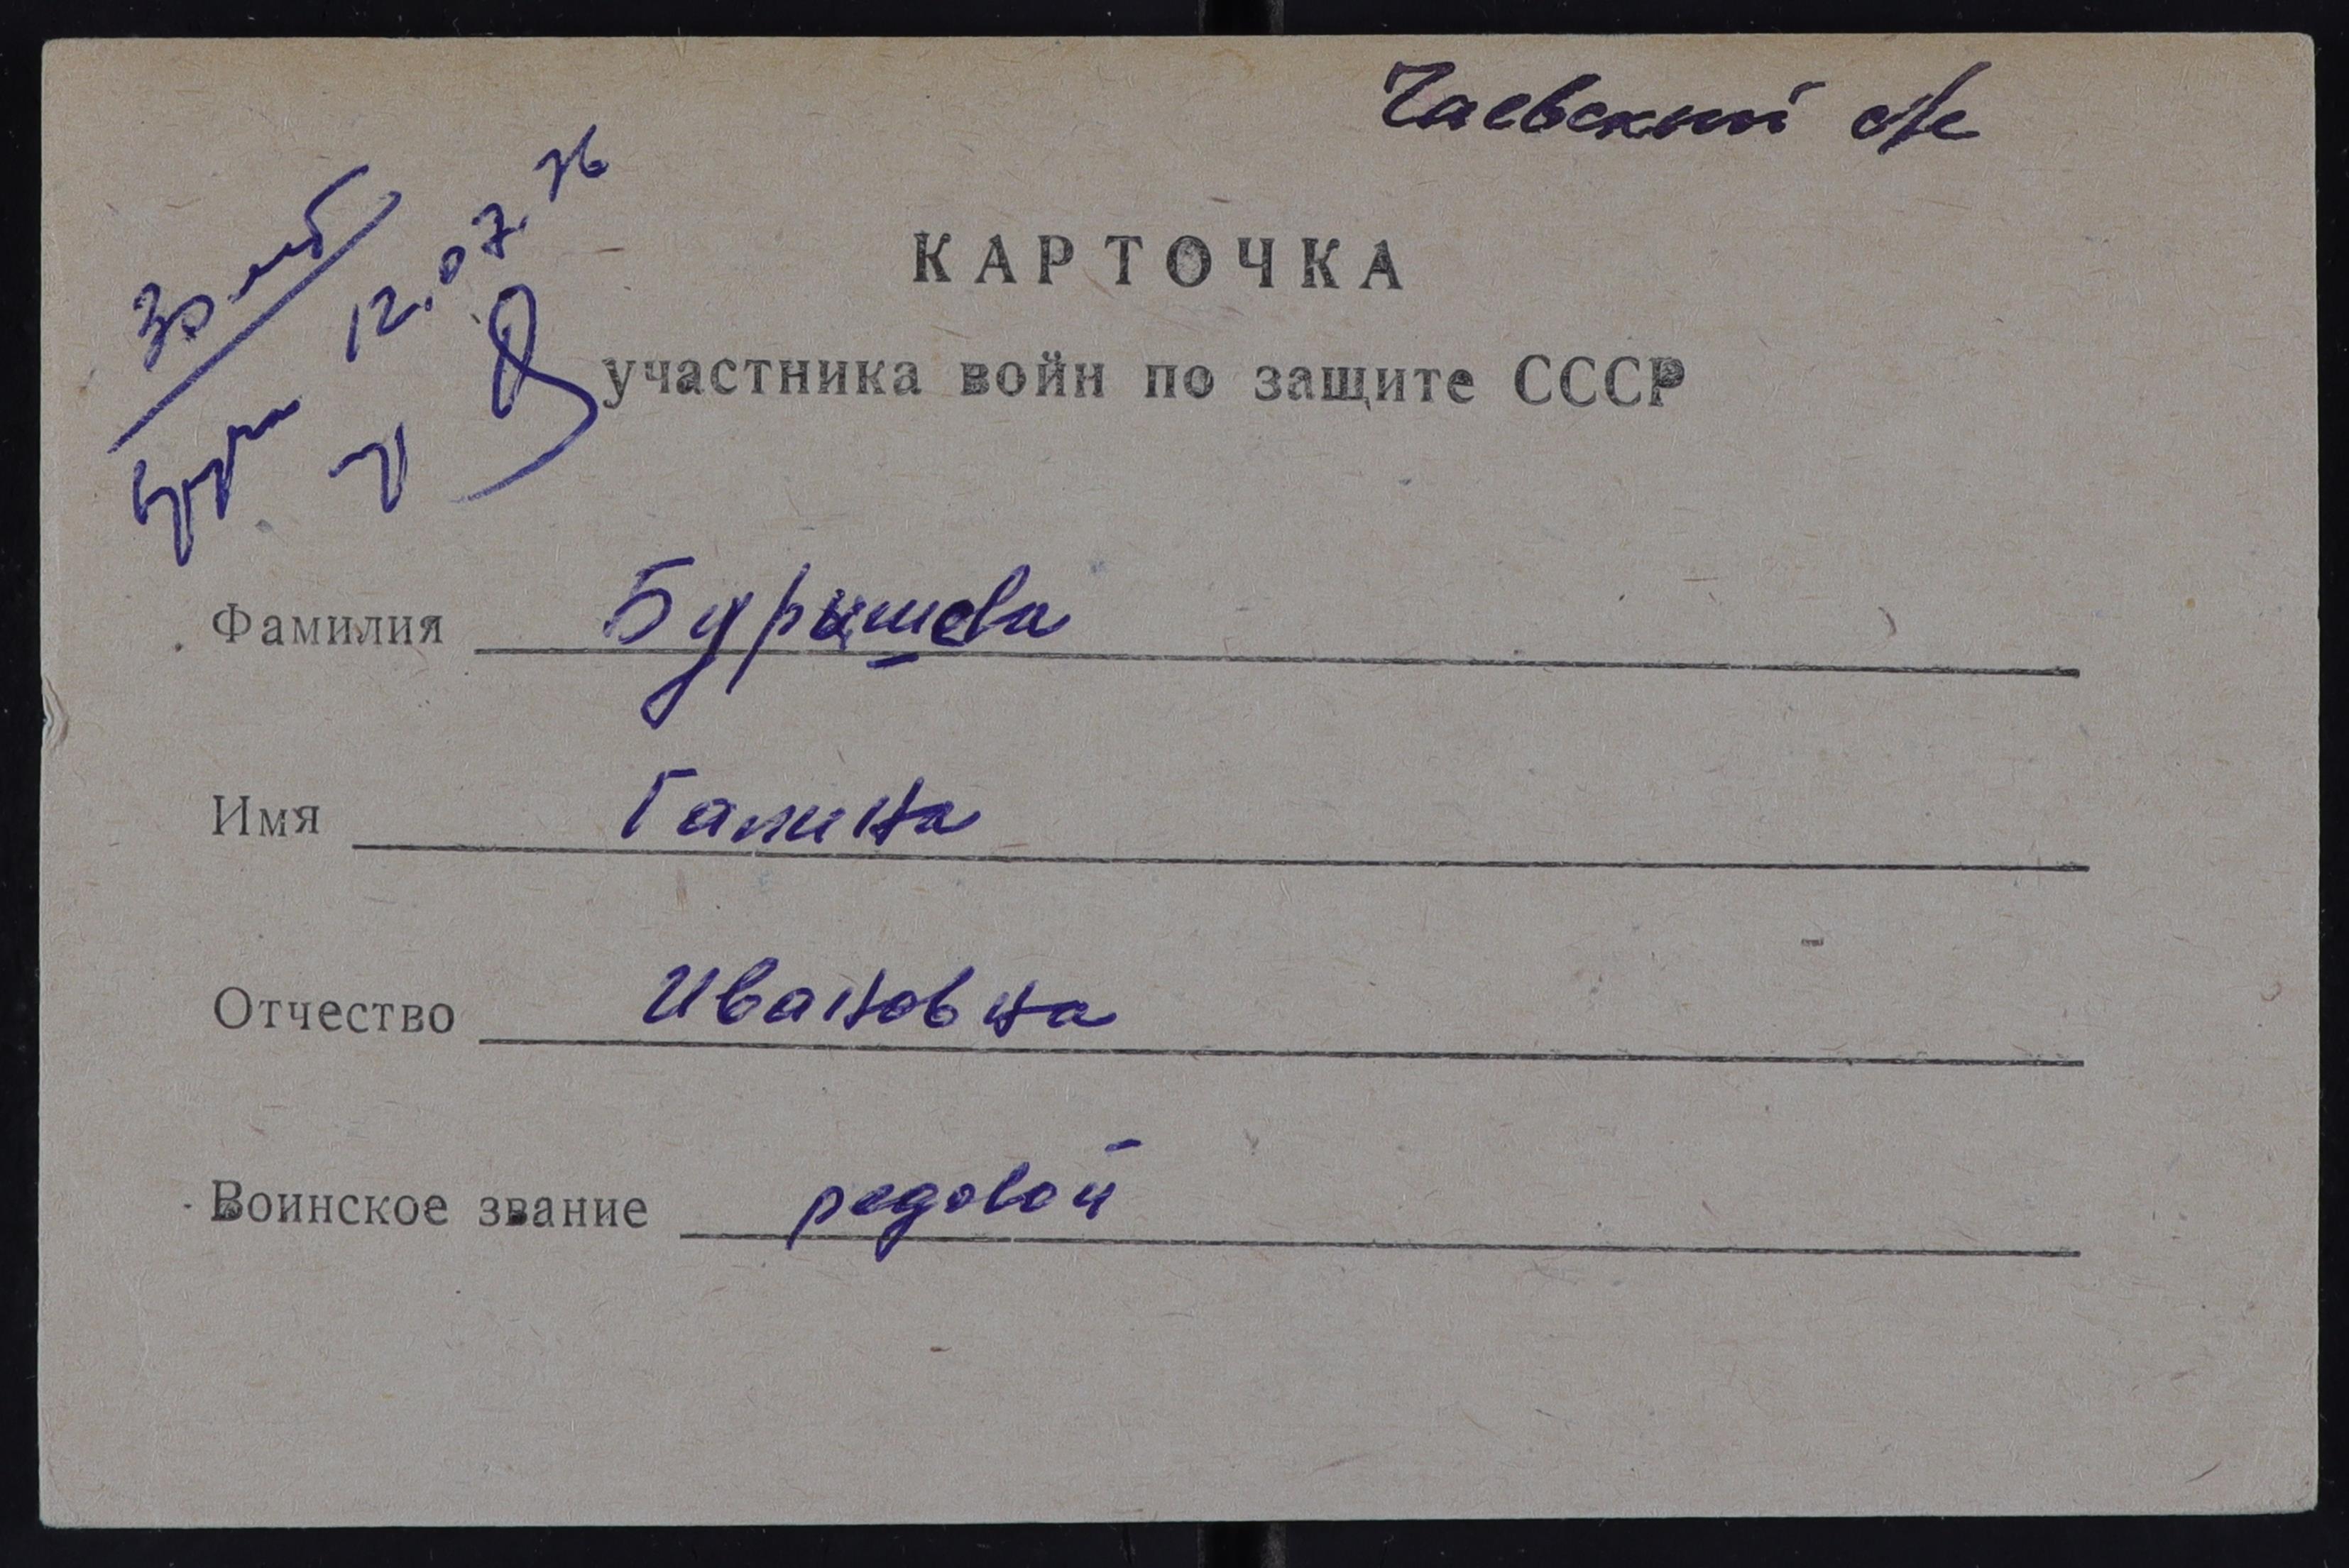 Чаевский с/с
12.07.76
КАРТОЧКА
участника войн по защите СССР
Фамилия Бурышева
Имя Галина
Отчество Ивановна
Воинское звание редовой